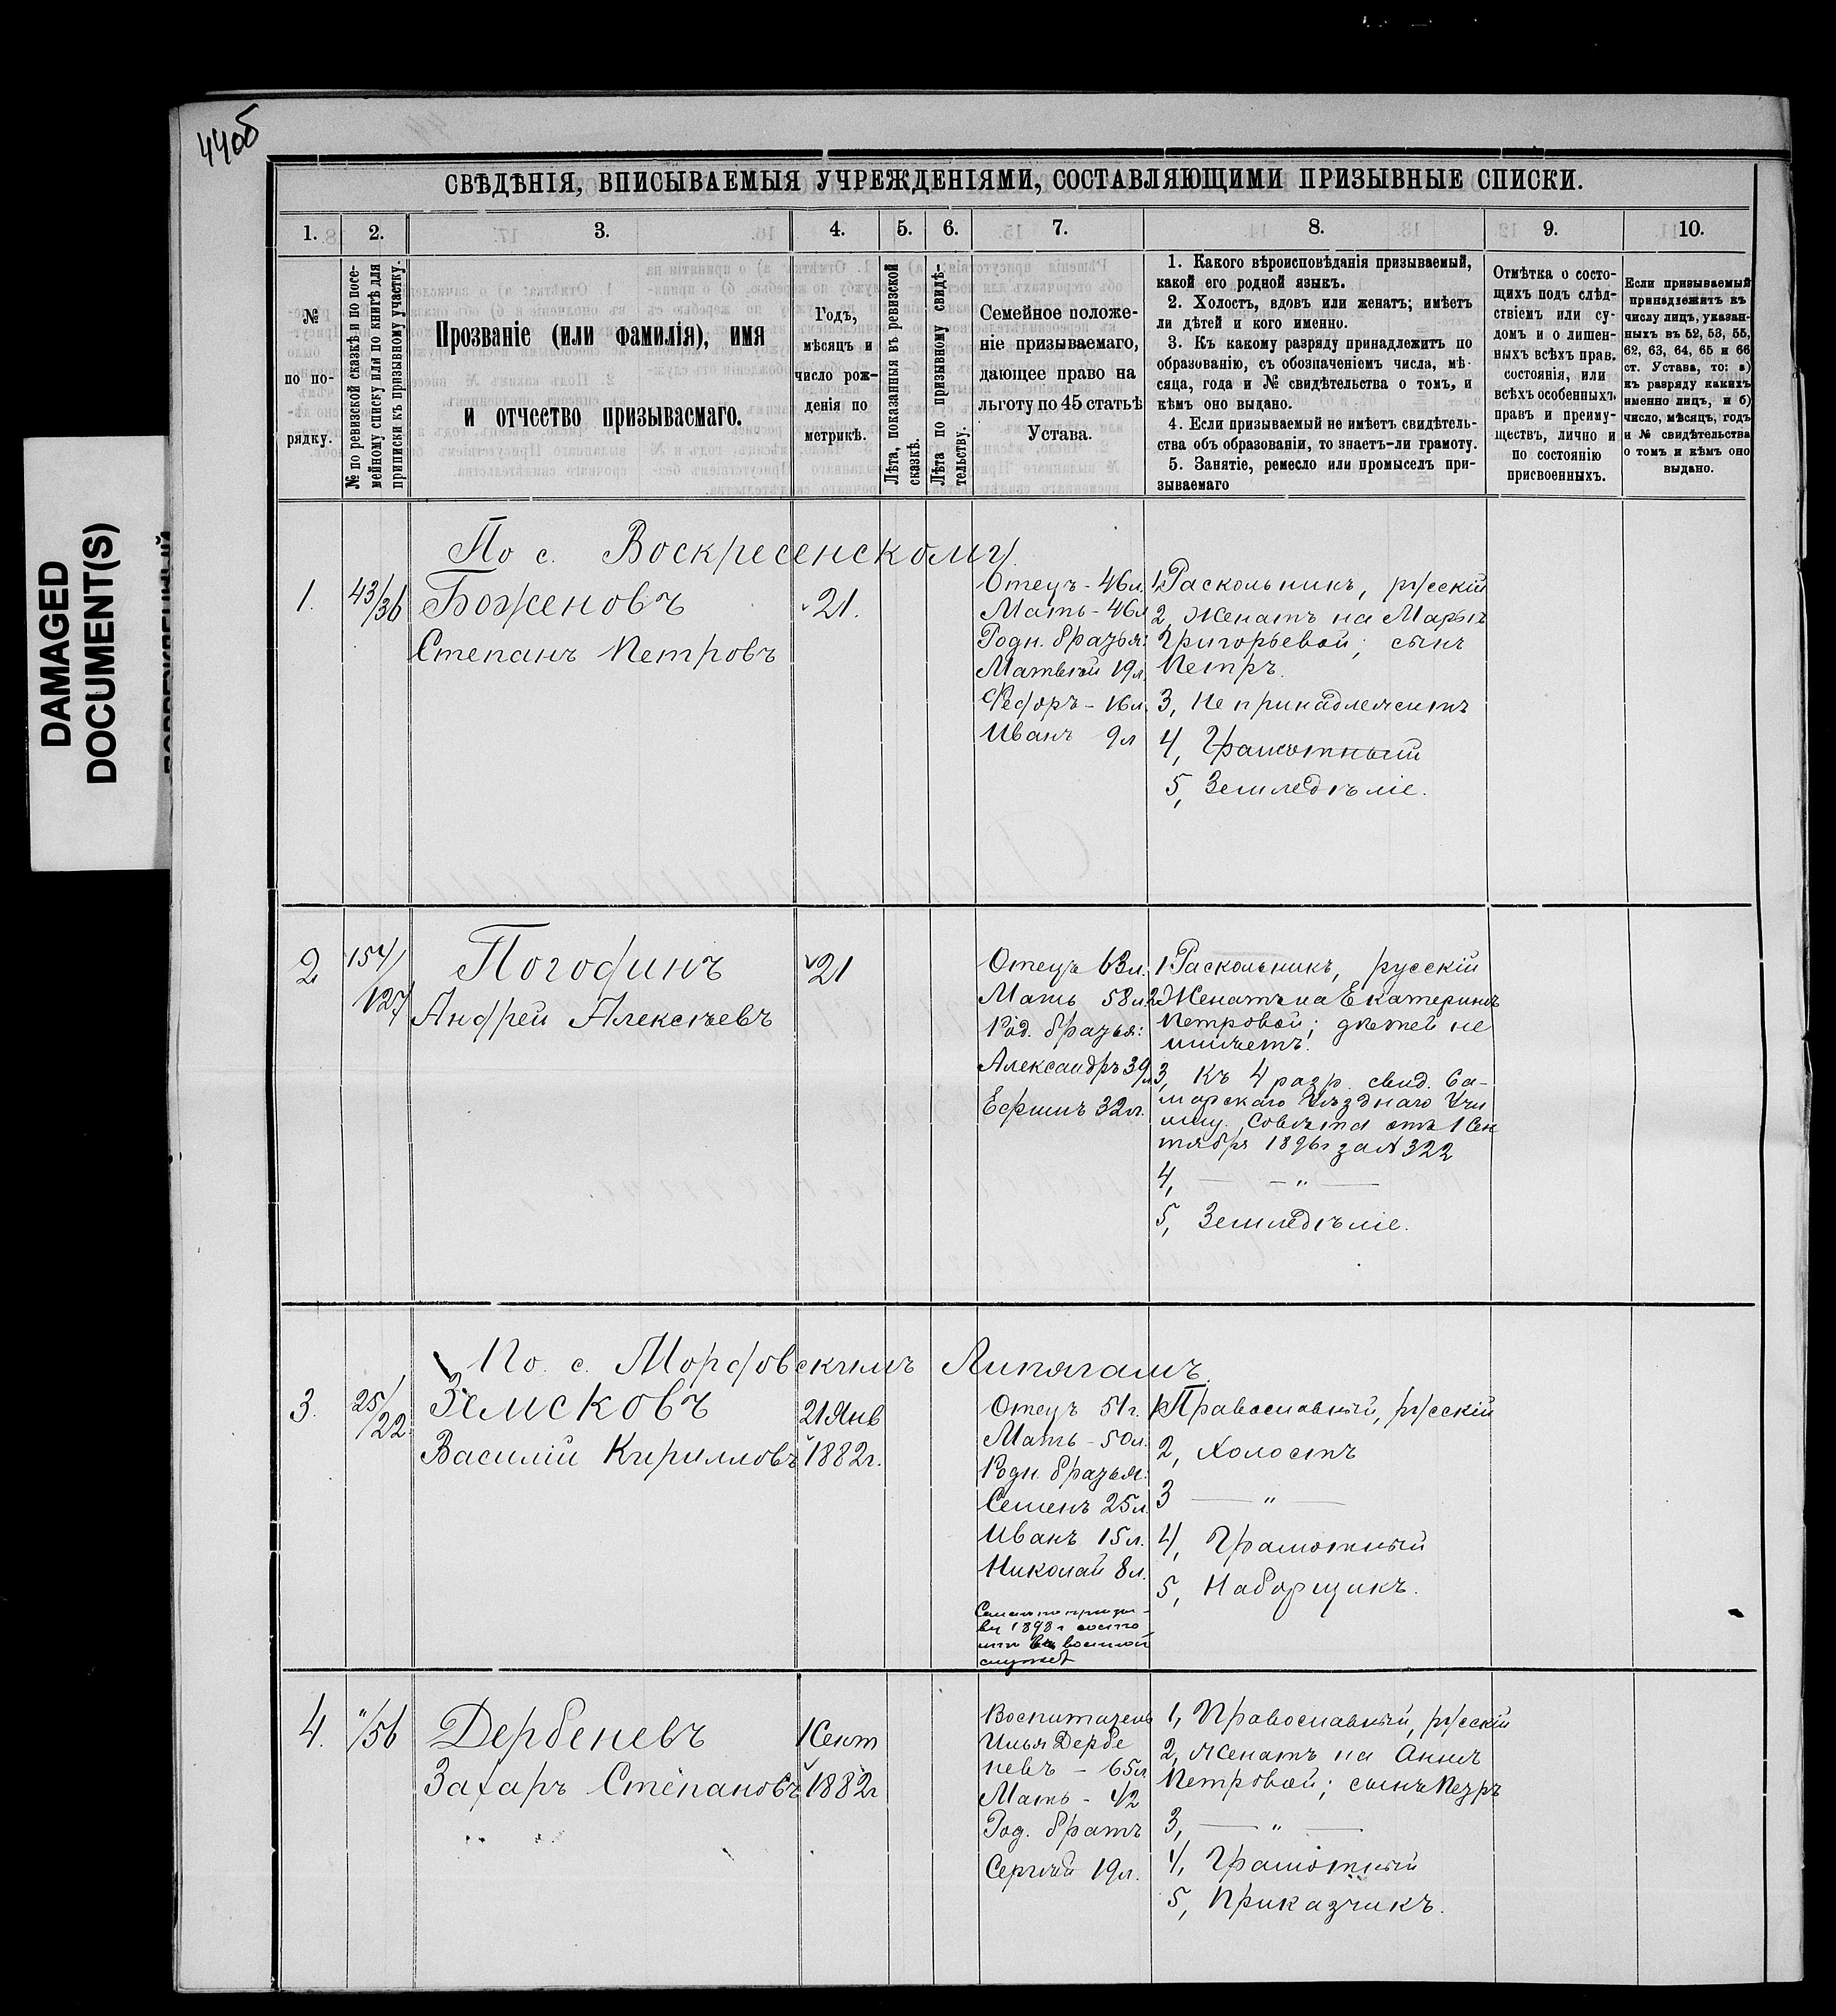 44об
DAMAGED
DOCUMENT(S)
СВѢДѢНІЯ, ВПИСЫВАЕМЫЯ УЧРЕЖДЕНІЯМИ, СОСТАВЛЯЮЩИМИ ПРИЗЫВНЫЕ СПИСКИ.
1. 2. 3. 4. 5. 6. 7. 8. 9. 10.
№
по по-
рядку.
№ по ревизской сказкѣ и по посе-
мейному списку или по книгѣ для
приписки къ призывному участку.
Прозваніе (или фамилія), имя
и отчество призываемаго.
Годъ,
мѣсяцъ и
число рож-
денія по
метрикѣ.
Лѣта, показанныя въ ревизской
сказкѣ.
Лѣта по призывному свидѣ-
тельству.
Семейное положе-
ніе призываемаго,
дающее право на
льготу по 45 статьѣ
Устава.
1. Какого вѣроисповѣданія призываемый,
какой его родной языкъ.
2. Холостъ, вдовъ или женатъ; имѣетъ
ли дѣтей и кого именно.
3. Къ какому разряду принадлежитъ по
образованію, съ обозначеніемъ числа, мѣ-
сяца, года и № свидѣтельства о томъ, и
кѣмъ оно выдано.
4. Если призываемый не имѣетъ свидѣтель-
ства объ образованіи, то знаетъ-ли грамоту.
5. Занятіе, ремесло или промыселъ при-
зываемаго
Отмѣтка о состо-
щихъ подъ слѣд-
ствіемъ или су-
домъ и о лишен-
ныхъ всѣхъ прав.
состоянія, или
всѣхъ особенныхъ
правъ и преиму-
ществъ, лично и
по состоянію
присвоенныхъ.
Если призываемый
принадлежитъ къ
числу лицъ, указан-
ныхъ въ 52, 53, 55,
62, 63, 64, 65 и 66
ст. Устава, то: а)
къ разряду какихъ
именно лицъ, и б)
число, мѣсяцъ, годъ
и № свидѣтельства
о томъ и кѣмъ оно
выдано.
По с. Воскресенскому
1.
43/36
Боженовъ
Степанъ Петровъ
21.
Отецъ - 46л.
Мать - 46л
Родн. братья:
Матвѣй 19л.
Федоръ - 16л.
Иванъ 9л
1, Раскольникъ, русскій
2, Женатъ на Марьѣ
Григорьевой; сынъ
Петръ.
3, Не принадлежитъ
4, Грамотный
5, Земледѣліе.
2
154/
127
Погодинъ
Андрей Алексѣевъ
21
Отецъ 63л.
Мать 58л.
Род. братья:
Александръ 39л
Ефимъ 32л.
1 Раскольникъ, русскій
2, Женатъ на Екатеринѣ
Петровой; дѣтей не
имѣетъ.
3, Къ 4 разр. свид. Са-
марскаго Уѣзднаго Учи
лищ. Совѣта отъ 1 Сен
тября 1896г за № 322
4, — „ —
5, Земледѣліе.
По с. Мордовскимъ Липягамъ.
3.
25/
22.
Земсковъ
Василій Кирилловъ
21 Янв
1882г.
Отецъ 51г.
Мать - 50л.
Родн. братья:
Семенъ 25л.
Иванъ 15л.
Николай 8л.
Семенъ по призы-
ву 1898г состо
итъ въ военной
службѣ
1, Православный, русскій
2, Холостъ
3 — „ —
4, Грамотный
5, Наборщикъ.
4.
"/56
Дербеневъ
Захаръ Степановъ
1 Сент
1882г
Воспитатель
Илья Дербе
невъ - 65л
Мать - 42
Род. братъ
Сергѣй 19л.
1, Православный, русскій
2, Женатъ на Аннѣ
Петровой; сынъ Петръ
3, — „ —
4, Грамотный
5, Приказчикъ.